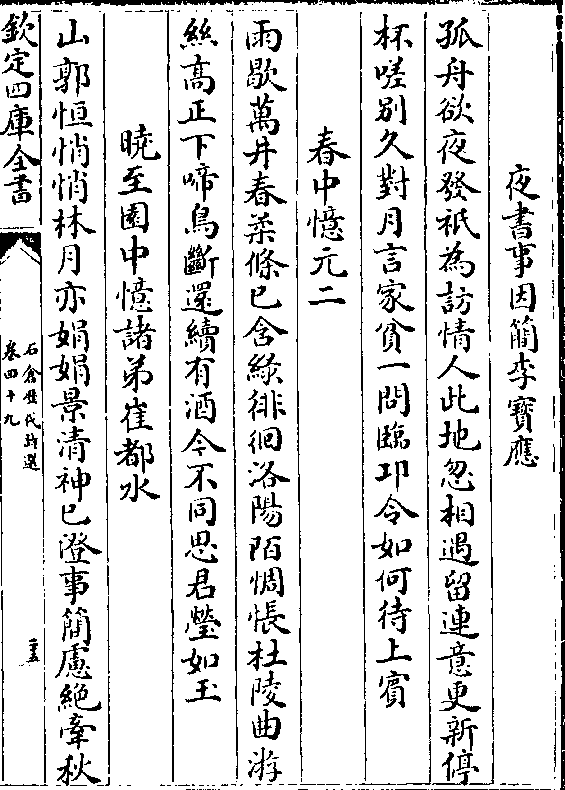 夜書事因簡李寶應
孤舟欲夜發祇為訪情人此地忽相遇留連意更新停
杯嗟別久對月言家貧一問臨邛令如何待上賓
春中憶元二
雨歇萬井春柔條已含緑徘徊洛陽陌惆悵杜陵曲游
絲高正下啼鳥斷還續有酒今不同思君瑩如玉
曉至園中憶諸弟崔都水
山郭恒悄悄林月亦娟娟景清神已澄事簡慮絶牽秋
欽定四庫全書
石倉歷代詩選
卷四十九
二五